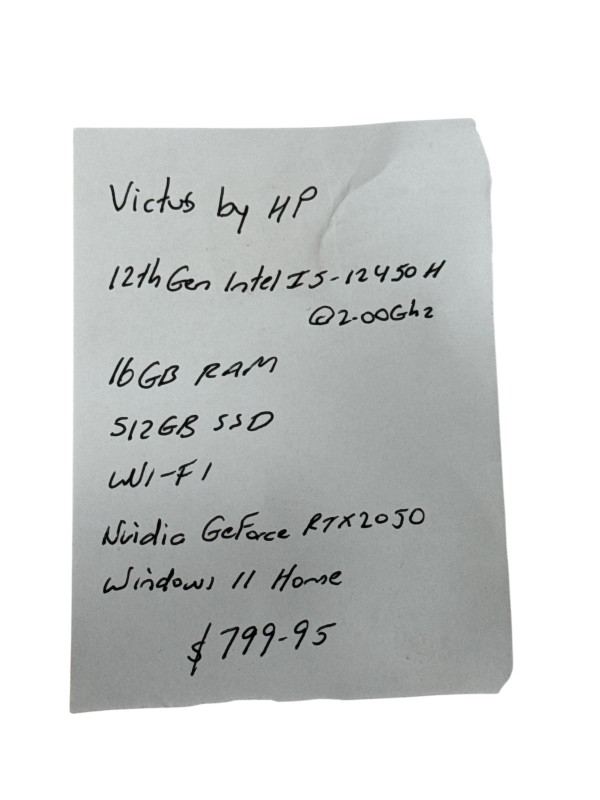 Victus by HP
12th Gen Intel I5-12450H
@2.00Ghz
16GB RAM
512GB SSD
WI-FI
Nvidia GeForce RTX2050
Windows 11 Home
$799-95